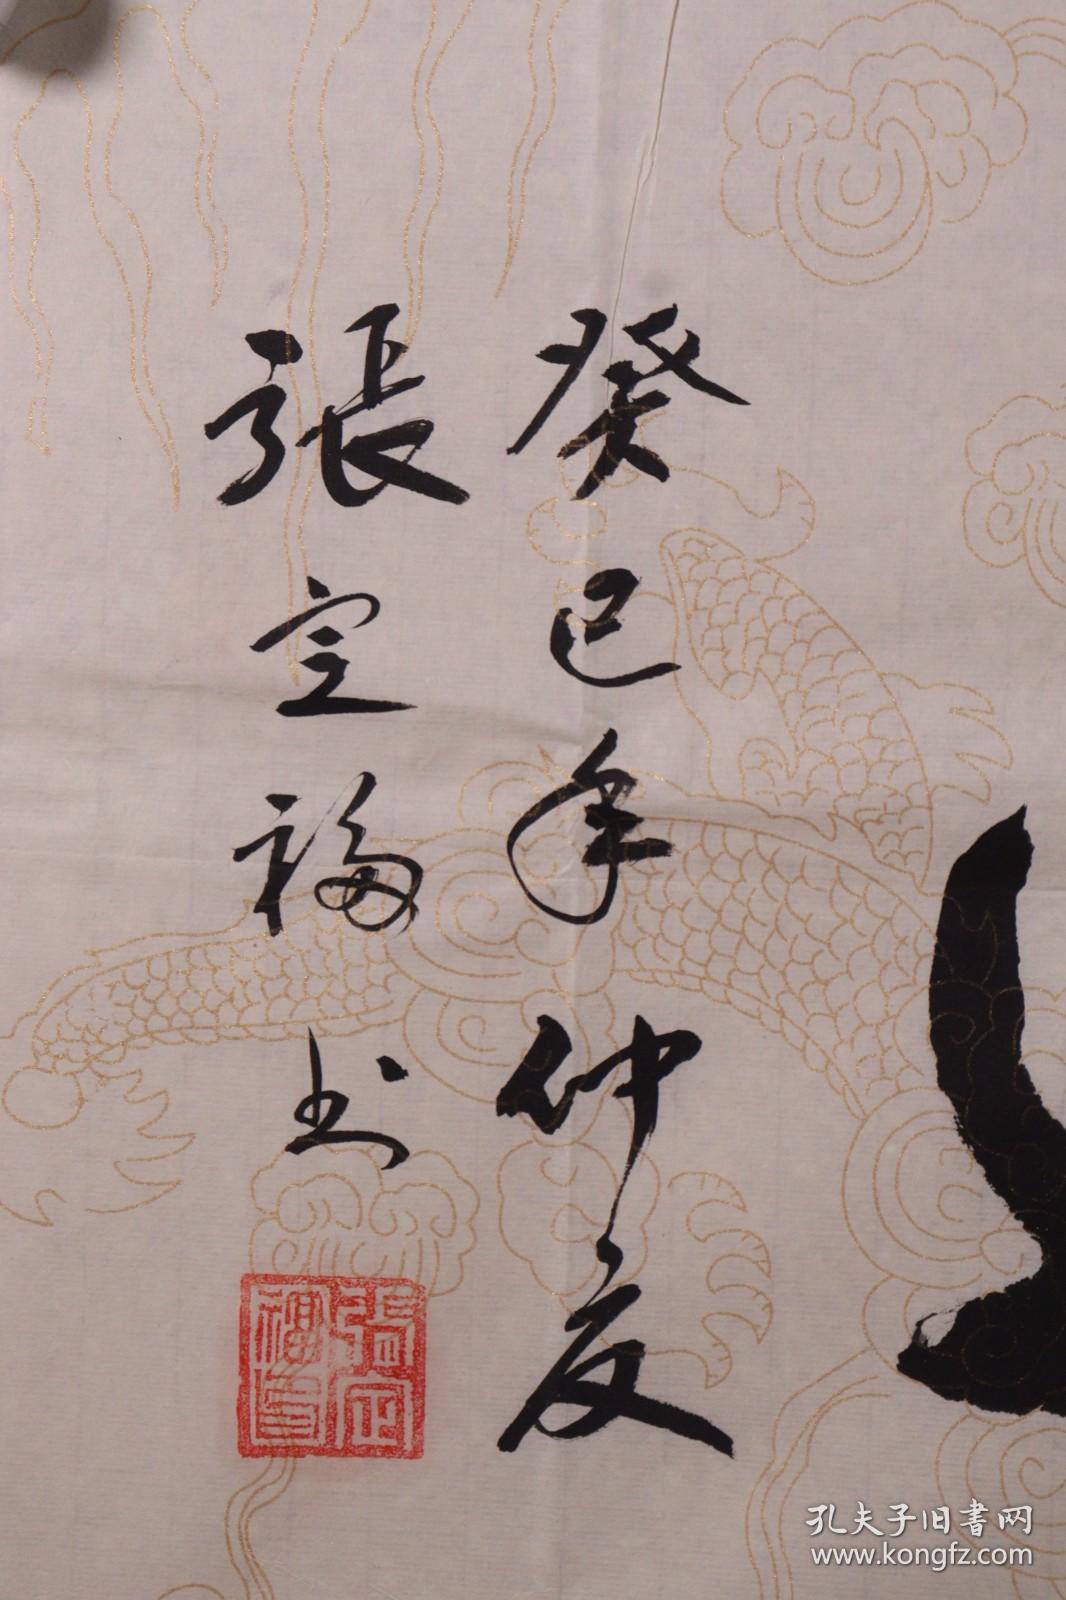 癸巳年仲夏
張定福书
張定
福印
孔夫子旧書网
www.kongfz.com